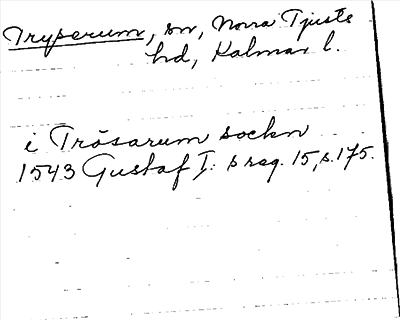 Tryserum, sn, Norra Tjusts
hd, Kalmar l.
i Trösarum sockn
1543 Gustaf I: s reg. 15, s. 175.